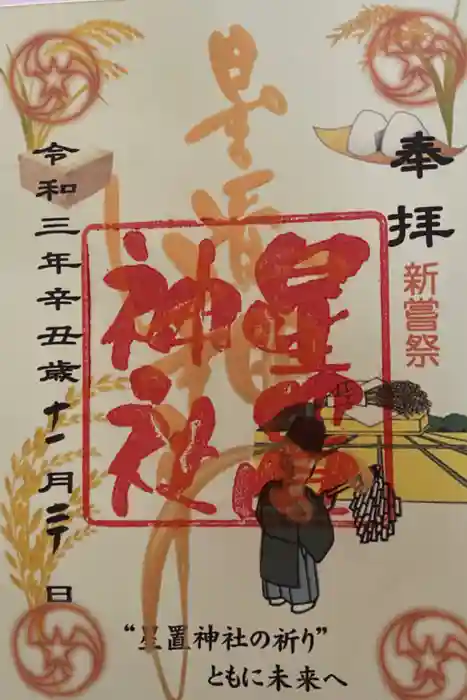 奉拝
新嘗祭
星置神社
星置神社
令和三年辛丑歳十一月二十日
“星置神社の祈り”
ともに未来へ